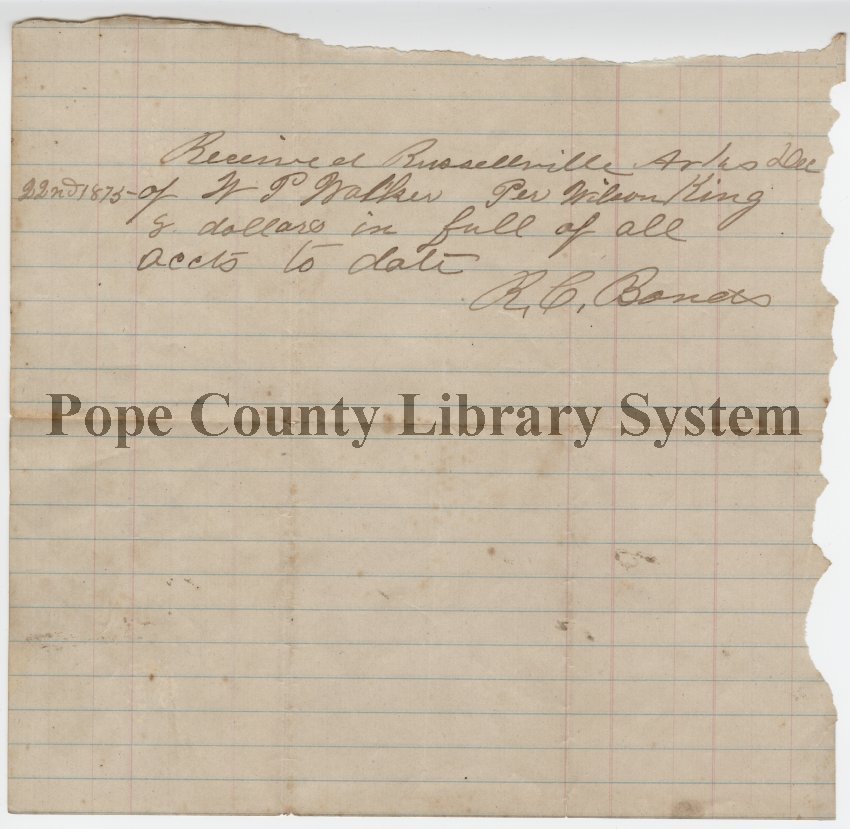 Received Russellville Arks Dec
22nd 1875 of W P Walker Per Wilson King
dollars in full of all
accts to date
R. C. Bonds
Pope County Library System